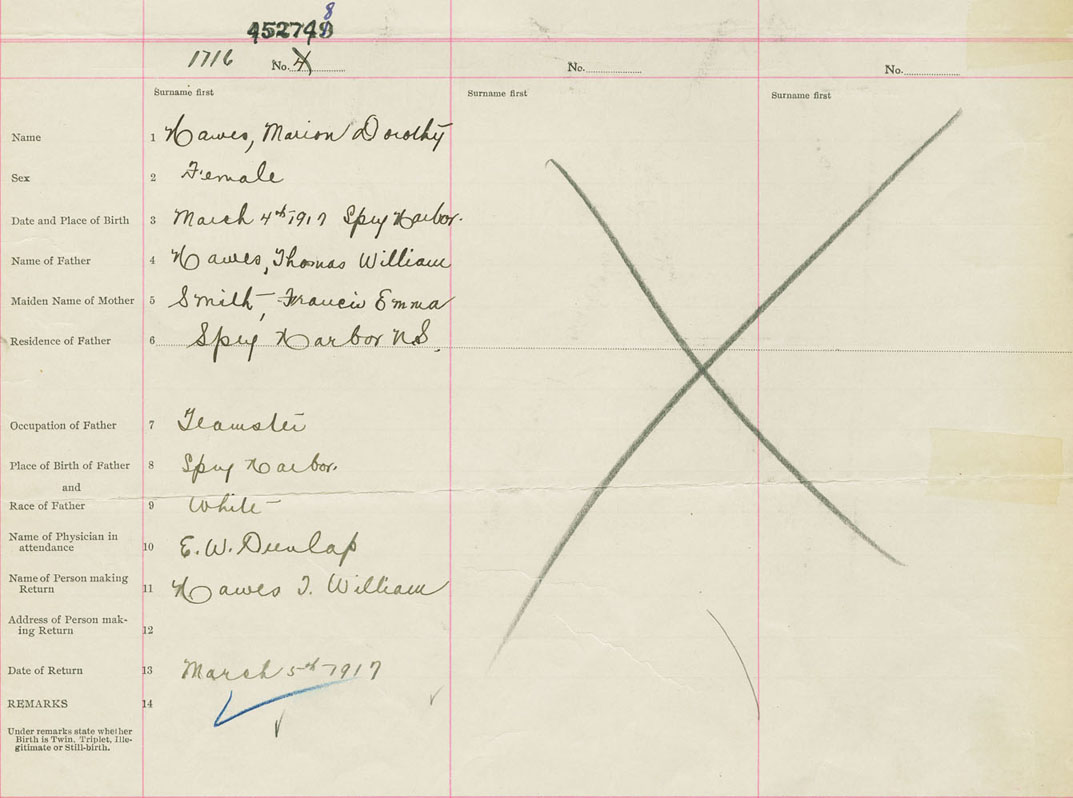 8
452748
1716 No. 4 No. No.
Surname first Surname first Surname first
Name 1 Hawes, Marion Dorothy
Sex 2 Female
Date and Place of Birth 3 March 4th 1917 Spry Harbor.
Name of Father 4 Hawes, Thomas William
Maiden Name of Mother 5 Smith, Francis Emma
Residence of Father 6 Spry Harbor N.S.
Occupation of Father 7 Teamster
Place of Birth of Father 8 Spry Harbor.
and
Race of Father 9 White
Name of Physician in
attendance 10 E. W. Dunlap
Name of Person making
Return 11 Hawes T. William
Address of Person mak-
ing Return 12
Date of Return 13 March 5th 1917
REMARKS 14
Under remarks state whether
Birth is Twin, Triplet, Ille-
gitimate or Still-birth.